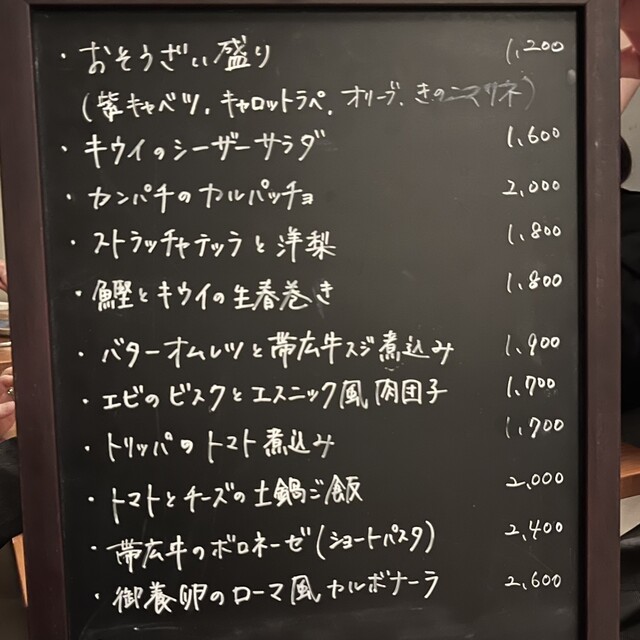 ・おそうざい盛り 1,200
(紫キャベツ、キャロットラペ、オリーブ、きのこマリネ)
・キウイのシーザーサラダ 1,600
・カンパチのカルパッチョ 2,000
・ストラッチャテッラと洋梨 1,800
・鰹とキウイの生春巻き 1,800
・バターオムレツと帯広牛スジ煮込み 1,900
・エビのビスクとエスニック風肉団子 1,700
・トリッパのトマト煮込み 1,700
・トマトとチーズの土鍋ご飯 2,000
・帯広牛のボロネーゼ(ショートパスタ) 2,400
・御養卵のローマ風カルボナーラ 2,600